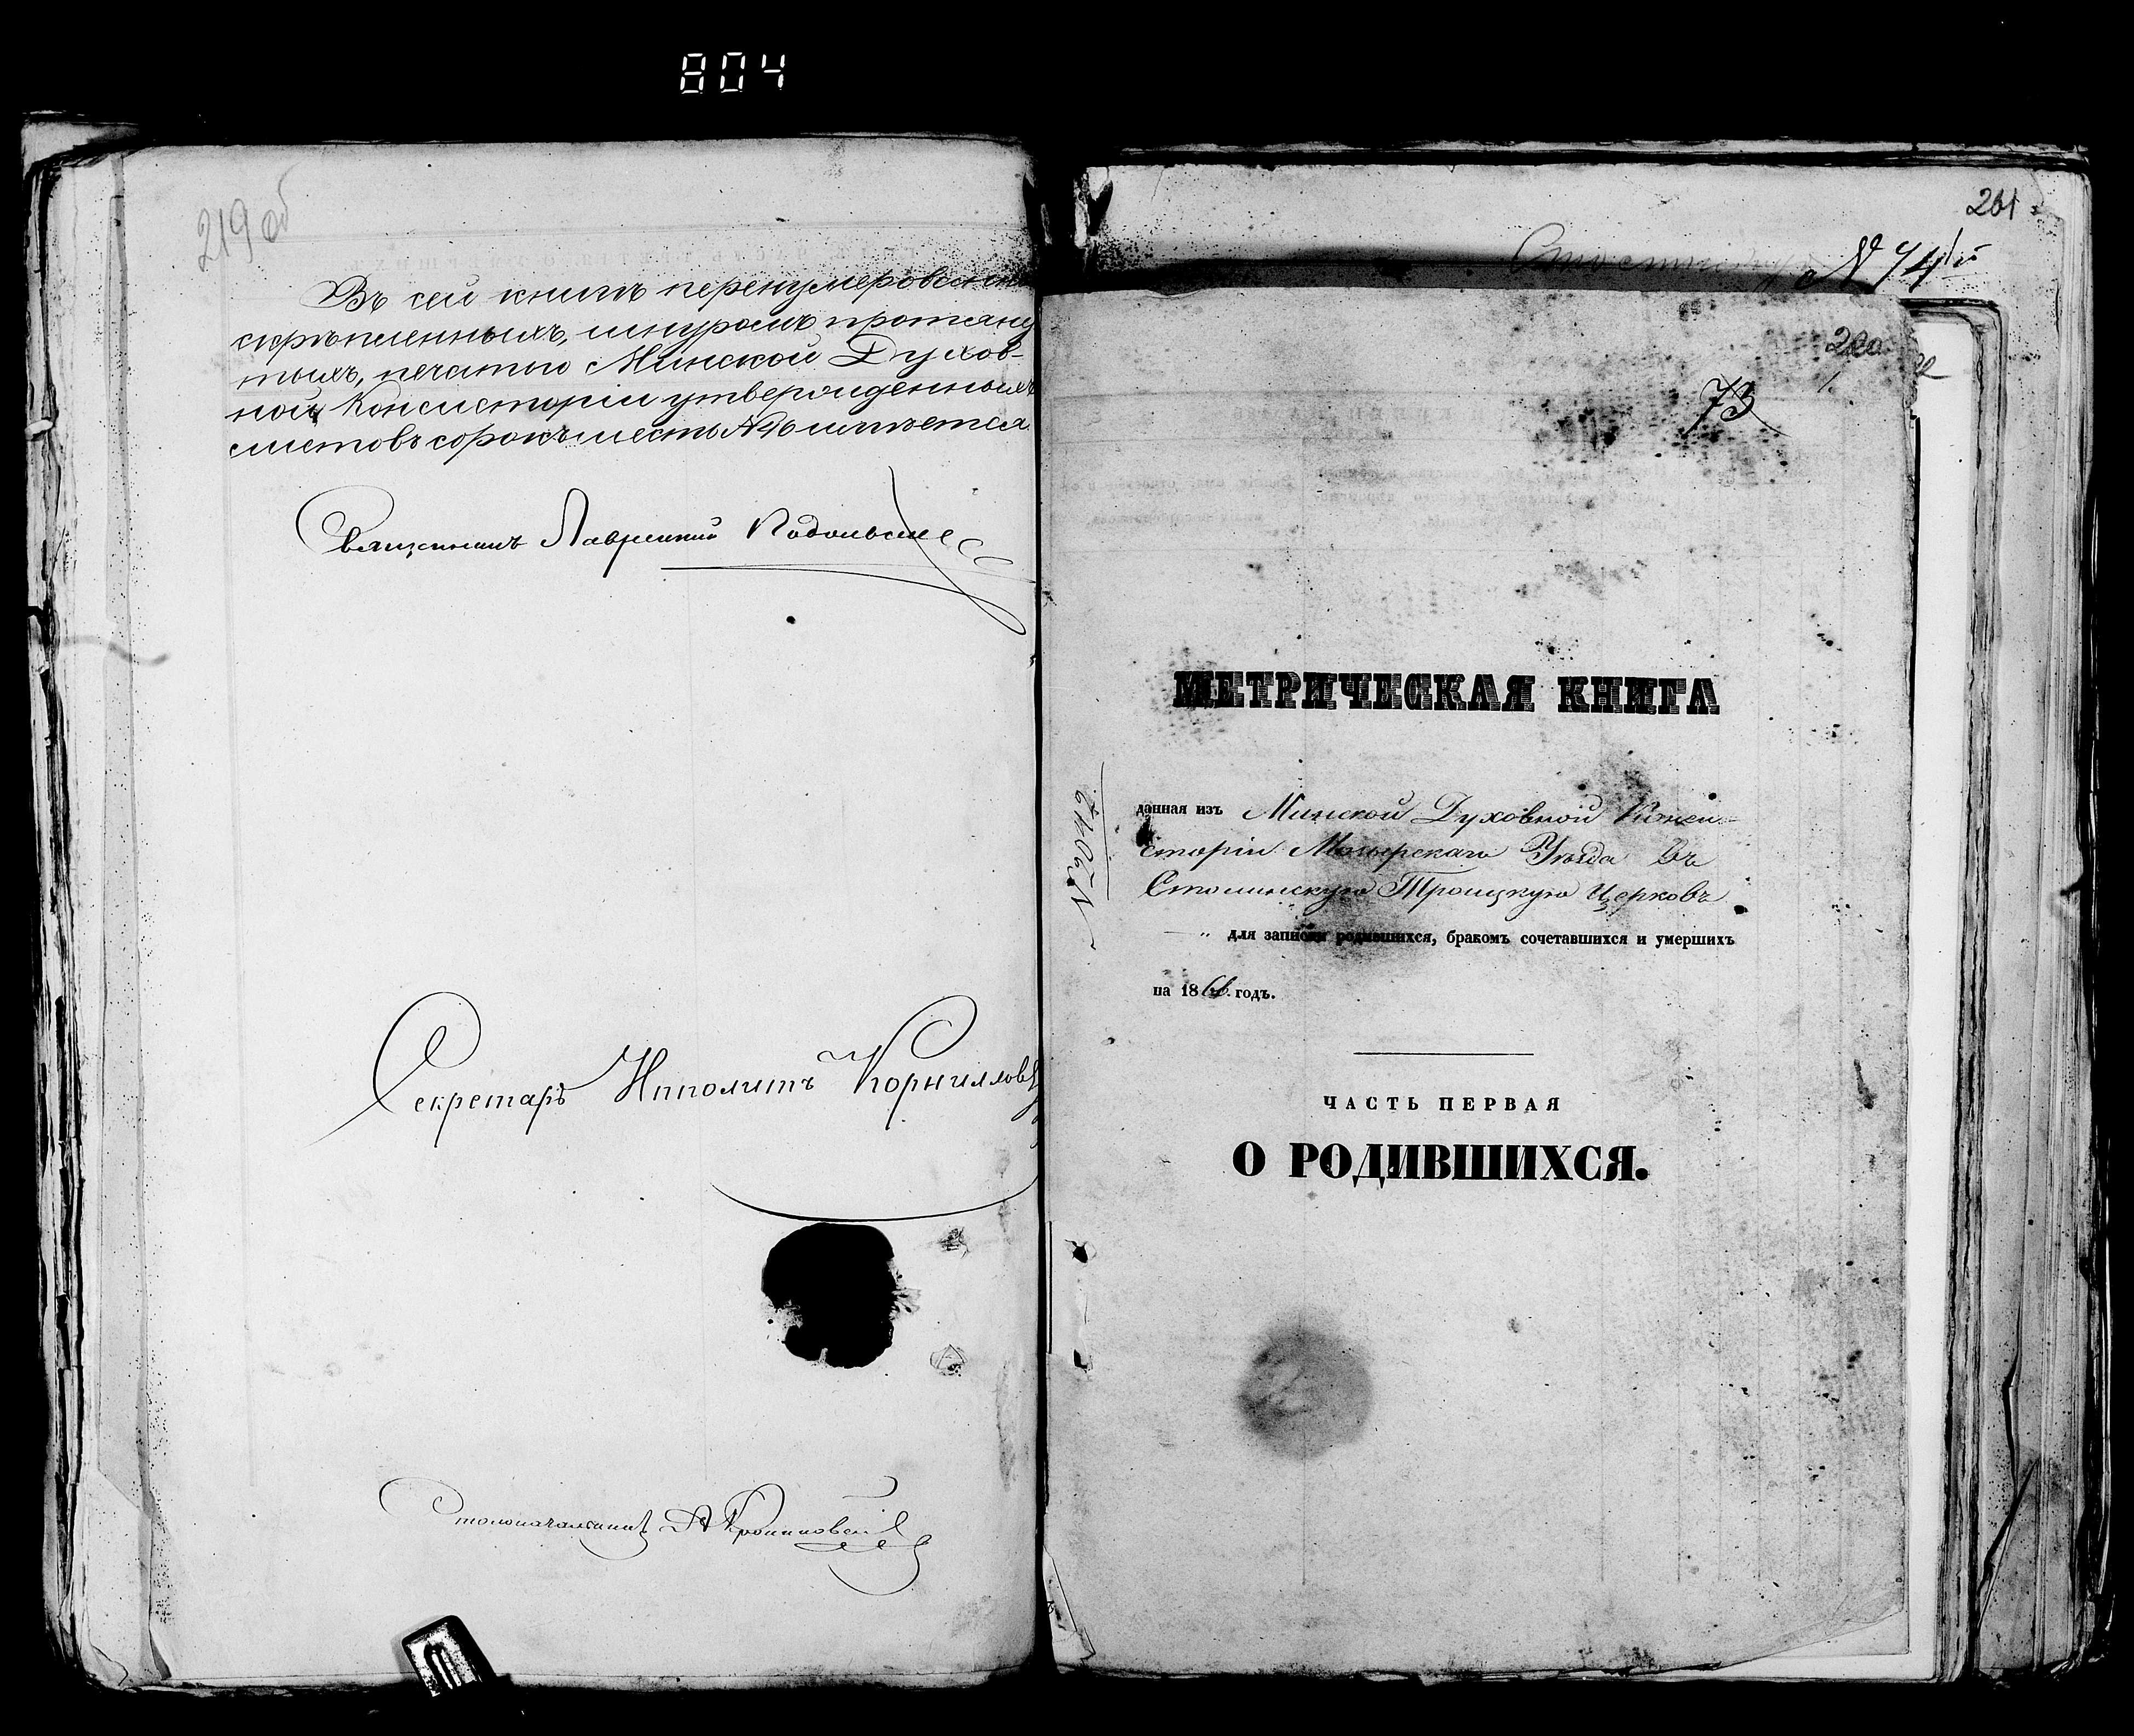 804
219 об
Въ сей книгѣ перенумерован
скрѣпленныхъ, шнуромъ протяну
тыхъ, печатью Минской Духов-
ной Консисторіи утвержденныхъ
листовъ сорокъ шесть № 46 имѣется
Священникъ Лаврентій Подольск
Секретарь Ипполитъ Корнилов
Столоначальникъ А
261
№ 74й
220
1.
73
МЕТРИЧЕСКАЯ КНИГА
данная изъ Минской Духовной Конси-
сторіи Мозырскаго Уѣзда въ
Столинскую Троицкую Церковь
для записки родившихся, бракомъ сочетавшихся и умершихъ
на 1866 годъ.
ЧАСТЬ ПЕРВАЯ
О РОДИВШИХСЯ.